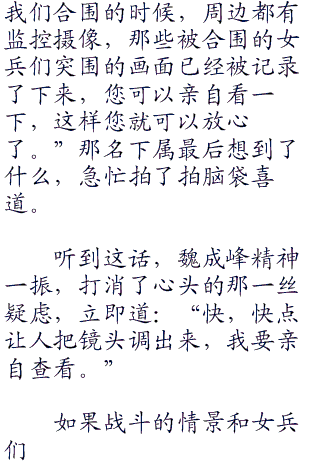 我们合围的时候，周边都有
监控摄像，那些被合围的女
兵们突围的画面已经被记录
了下来，您可以亲自看一
下，这样您就可以放心
了。”那名下属最后想到了
什么，急忙拍了拍脑袋喜
道。
听到这话，魏成峰精神
一振，打消了心头的那一丝
疑虑，立即道：“快，快点
让人把镜头调出来，我要亲
自查看。”
如果战斗的情景和女兵
们